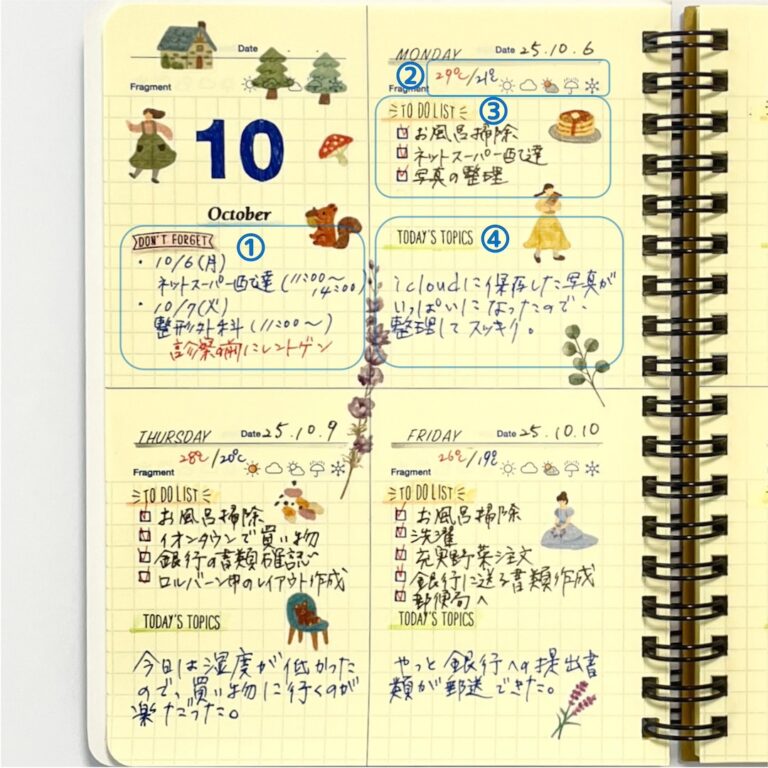 Date
Fragment
10
October
①
DON'T FORGET
・10/6(月)
ネットスーパー配達(11:00〜
14:00)
・10/7(火)
整形外科(11:00〜)
診察の前にレントゲン
MONDAY Date 25.10.6
② Fragment 29℃/21℃
TO DO LIST ③
お風呂掃除
ネットスーパー配達
写真の整理
TODAY'S TOPICS ④
icloudに保存した写真が
いっぱいになったので、
整理してスッキリ。
THURSDAY Date 25.10.9
28℃/20℃
Fragment
TO DO LIST
お風呂掃除
イオンタウンで買い物
銀行の書類確認
ロルバーン中のレイアウト作成
TODAY'S TOPICS
今日は湿度が低かった
ので、買い物に行くのが
楽だった。
FRIDAY Date 25.10.10
26℃/19℃
Fragment
TO DO LIST
お風呂掃除
洗濯
充実野菜注文
銀行に送る書類作成
郵便局へ
TODAY'S TOPICS
やっと銀行への提出書
類が郵送できた。